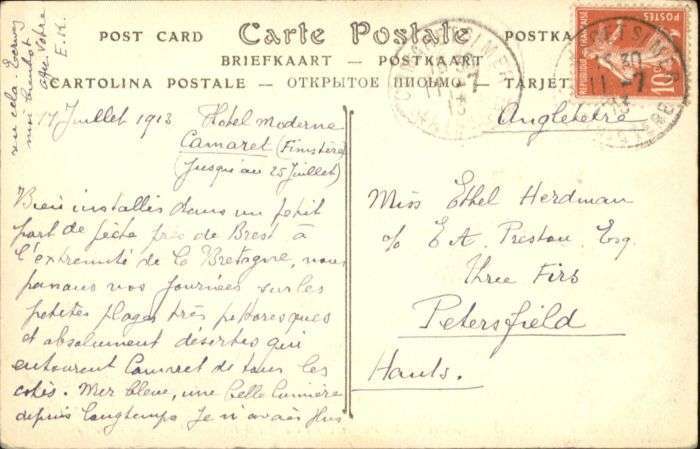 POST CARD Carte Postale POSTKA
BRIEFKAART — POSTKAART
CARTOLINA POSTALE — ОТКРЫТОЕ ПИСЬМО — TARJET
REPUBLIQUE FRANÇAISE
POSTES
10
11 -7
13
FINISTERE
17 Juillet 1913 Hotel Moderne
Camaret (Finistère)
(Jusqu'au 25 Juillet)
Bien installés dans un petit
port de pêche près de Brest à
l'extremité de la Bretagne, nous
passons nos journées sur les
petites plages très pittoresques
et absolument désertes qui
entourent Camaret de tous les
cotés. Mer bleue, une belle lumière
depuis longtemps je n'avais plus
vu cela.
votre
E.K.
Angleterre
Miss Ethel Herdman
c/o E A. Preston Esq.
Three Firs
Petersfield
Hants.